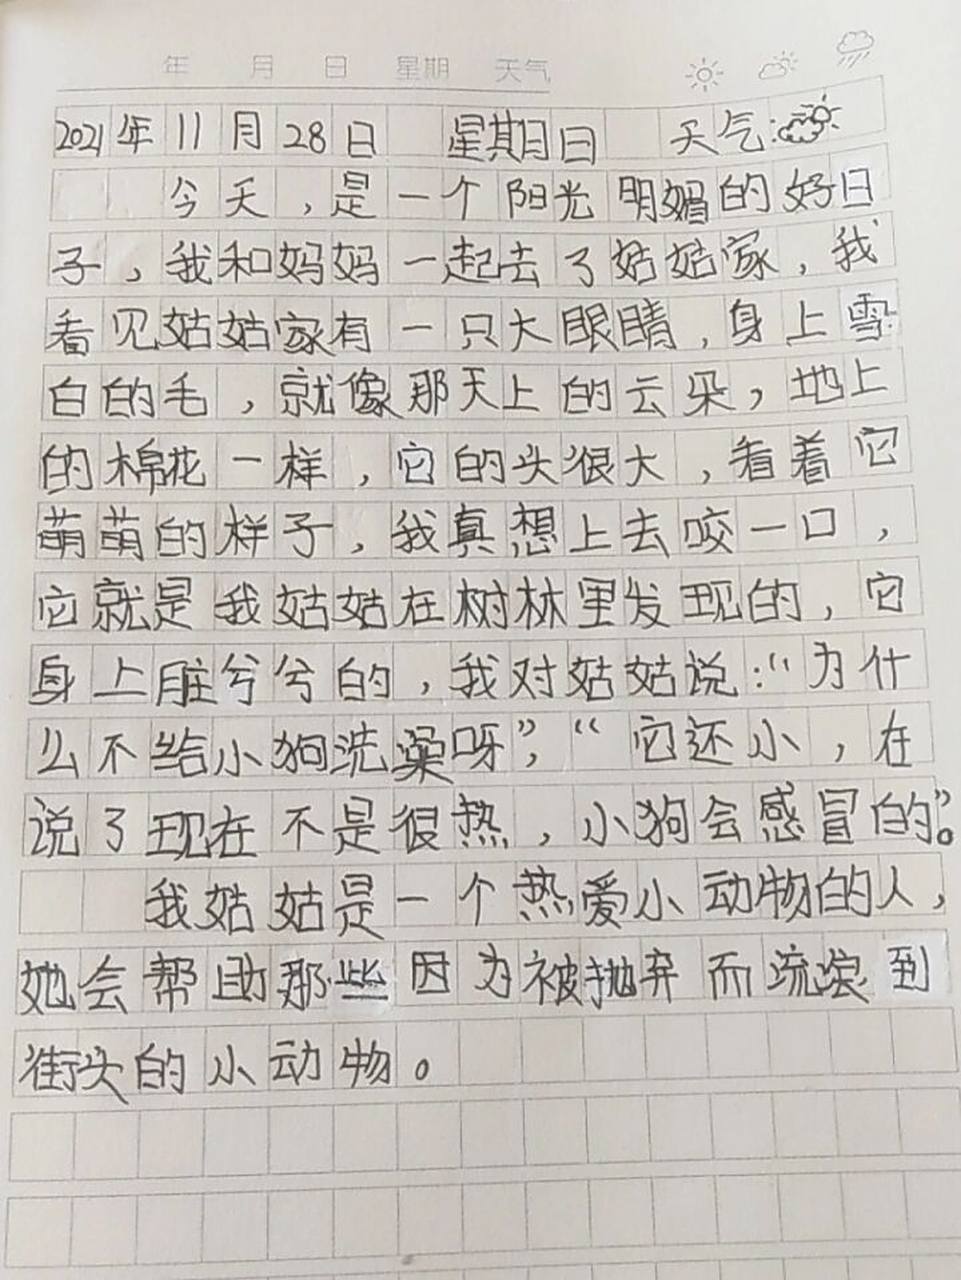 年 月 日 星期 天气
2021年11月28日 星期日 天气:
今天,是一个阳光明媚的好日
子,我和妈妈一起去了姑姑家,我
看见姑姑家有一只大眼睛,身上雪
白的毛,就像那天上的云朵,地上
的棉花一样,它的头很大,看着它
萌萌的样子,我真想上去咬一口,
它就是我姑姑在树林里发现的,它
身上脏兮兮的,我对姑姑说:“为什
么不给小狗洗澡呀”,“它还小,在
说了现在不是很热,小狗会感冒的”。
我姑姑是一个热爱小动物的人,
她会帮助那些因为被抛弃而流浪到
街头的小动物。